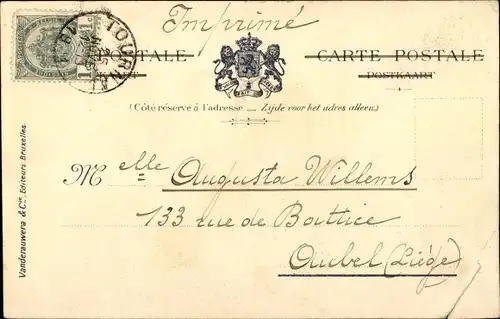 Imprimé
TOURNAI
CARTE POSTALE
POSTKAART
(Côté réservé à l'adresse — Zijde voor het adres alleen.)
M elle Augusta Willems
133 rue de Battice
Aubel (Liège)
Vanderauwera & Cie, Editeurs Bruxelles.